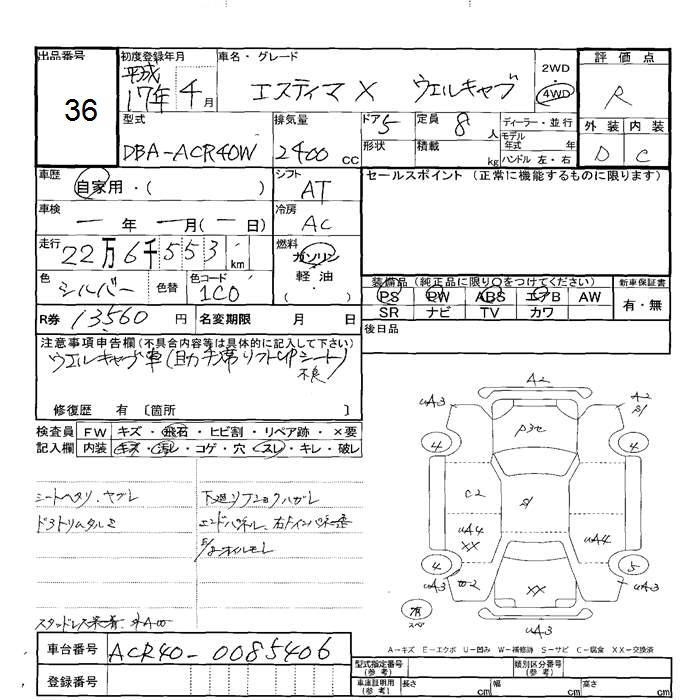 出品番号 初度登録年月 車名・グレード 評価点
36 平成17年4月 エスティマX ウェルキャブ 2WD 4WD R
型式 排気量 ドア 5 定員 8人 ディーラー・並行 外装 内装
DBA-ACR40W 2400cc 形状 積載 kg モデル年式 年 ハンドル 左・右 D C
車歴 自家用・( ) シフト AT セールスポイント (正常に機能するものに限ります)
車検 ー年 ー月(ー日) 冷房 AC
走行 22万6千553km 燃料 ガソリン 軽油 ・( )
色 シルバー 色替 色コード 1C0
装備品 (純正品に限り○をつけてください) 新車保証書
PS PW ABS エアB AW 有・無
SR ナビ TV カワ
R券 13560円 名変期限 月 日 後日品
注意事項申告欄 (不具合内容等は具体的に記入して下さい)
ウエルキャブ車(助手席リフトUPシート)
不良
修復歴 有 〔箇所 〕
検査員記入欄 FW キズ・飛石・ヒビ割・リペア跡・×要
内装 キズ・汚レ・コゲ・穴・スレ・キレ・破レ
シートヘタリ、ヤブレ
エンドパネル、
A2
uA3
A2
4 4
C2
uA4
XX
uA4
4 5
uA3 XX uA3
有
スペア
uA3
A=キズ E=エクボ U=凹み W=補修跡 S=サビ C=腐食 XX=交換済
車台番号 ACR40-0085406
登録番号
型式指定番号 (参考) 類別区分番号 (参考)
車庫証明用 (参考) 長さ cm 幅 cm 高さ cm